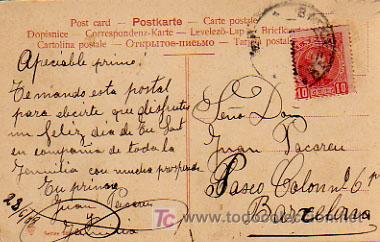 Post card — Postkarte — Carte postale
Dopisnice - Correspondenz-Karte - Levelező-Lap - Briefkaart
Cartolina postale - Открытое письмо - Tarjeta postal
Apreciable primo:
Temando esta postal
para decirte que disfrutes
un feliz dia de tu Sat
en compañia de toda la
Familia con mucha prosperidad
Tu primo
Juan Pascau
y
Familia
23/6/06
10 10
Señor Don
Juan Pascau
Paseo Colon nº 6 pº
Barcelona
TC todocoleccion.net